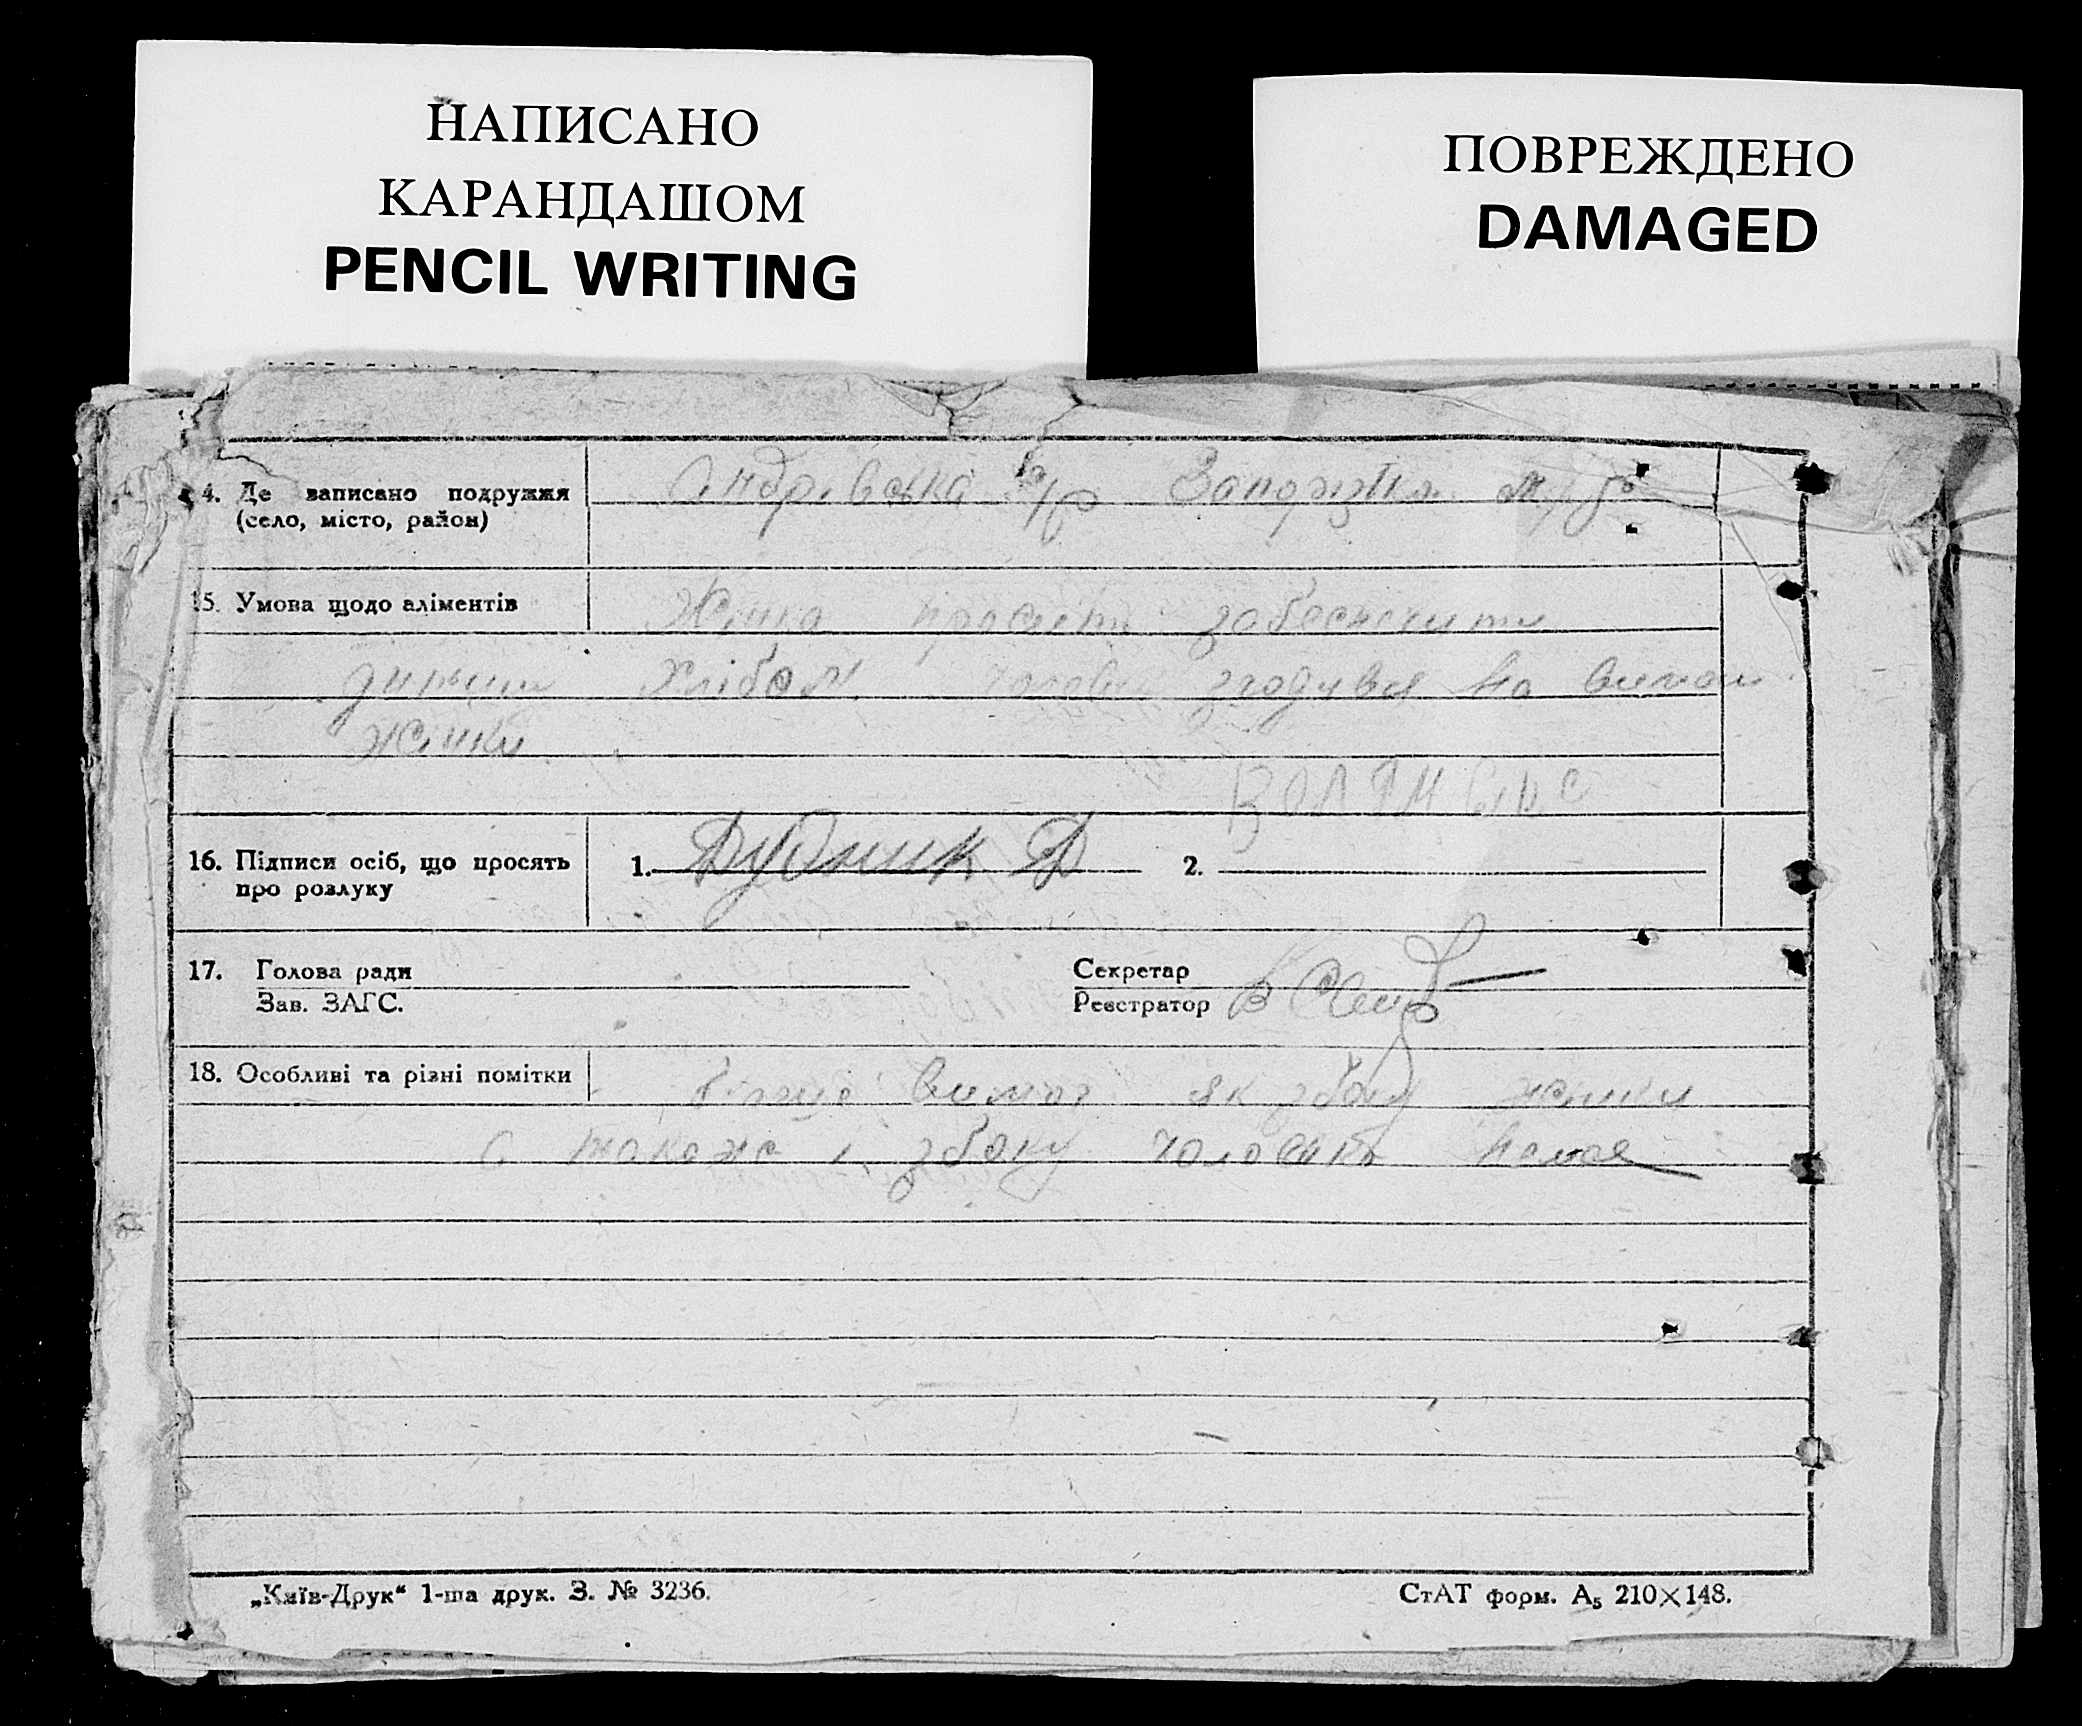 НАПИСАНО
КАРАНДАШОМ
PENCIL WRITING
ПОВРЕЖДЕНО
DAMAGED
4. Де записано подружжя
(село, місто, район)
Андрівська с/р Запоріжжя
15. Умова щодо аліментів
Жінка просить забеспечити
хлібом чоловік згодився на
жінки
16. Підписи осіб, що просять
про розлуку
1. Дудник Д
2.
17. Голова ради
Зав. ЗАГС.
Секретар
Реєстратор
18. Особливі та різні помітки
більше вимог як збоку жінки
а також і збоку чоловіка немає
„Київ-Друк“ 1-ша друк. З. № 3236.
СтАТ форм. А₅ 210×148.